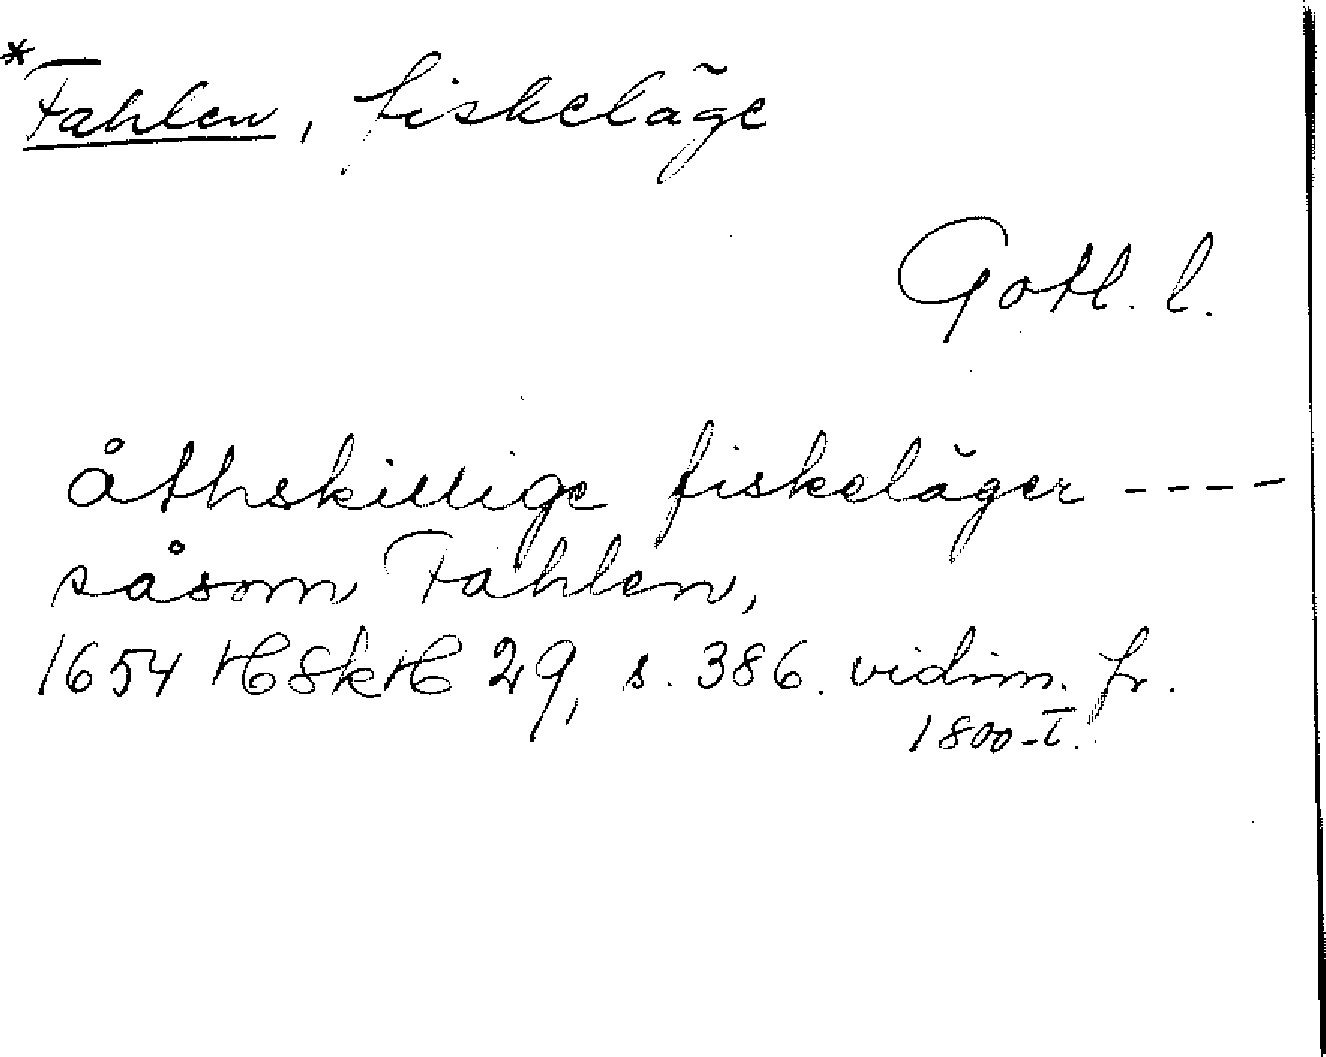 * Fahlen, fiskeläge
Gotl. l.
åthskillige fiskeläger ----
såsom Fahlen,
1654 HSkH 29, s. 386. vidim. fr.
1800-t.